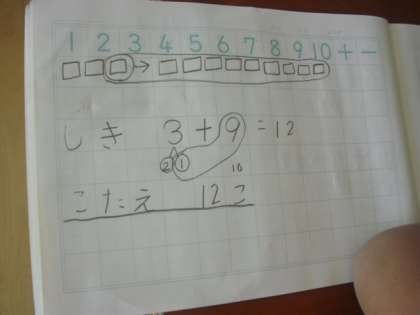 1 2 3 4 5 6 7 8 9 10 + −
しき 3+9=12
② ① 10
こたえ 12こ